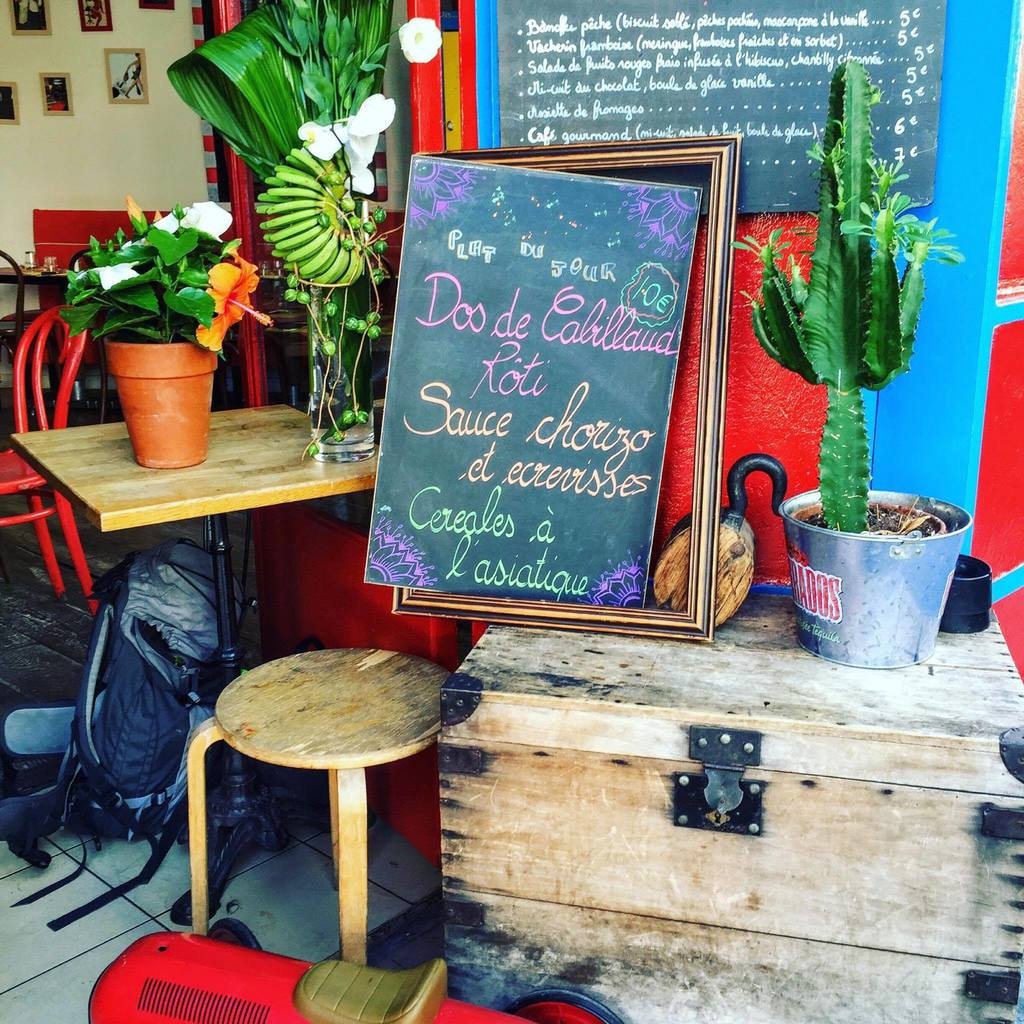 . Banoffee pêche (biscuit sablé, pêches pochées, mascarpone à la vanille .... 5€
. Vacherin framboise (meringue, framboises fraîches et en sorbet) ........ 5€
. Salade de fruits rouges frais infusés à l'hibiscus, chantilly citronnée ..... 5€
. Mi-cuit au chocolat, boule de glace vanille ........ 5€
. Assiette de fromages ........ 6€
. Café gourmand (mi-cuit, salade de fruit, boule de glace) ........ 7€
PLAT DU JOUR
10€
Dos de Cabillaud
Rôti
Sauce chorizo
et ecrevisses
Cereales à
l'asiatique
ADOS
tequila